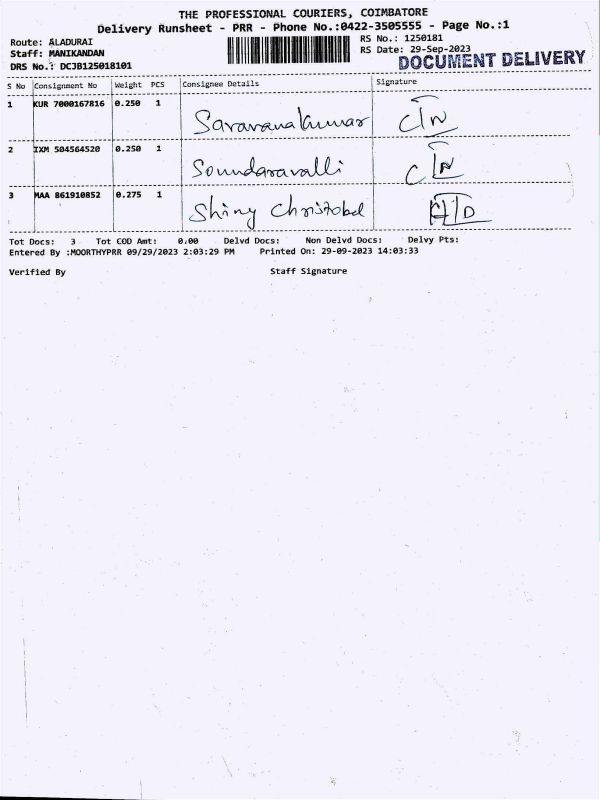 THE PROFESSIONAL COURIERS, COIMBATORE
Delivery Runsheet - PRR - Phone No.:0422-3505555 - Page No.:1
Route: ALADURAI
RS No.: 1250181
Staff: MANIKANDAN
RS Date: 29-Sep-2023
DRS No.: DCJB125018101
DOCUMENT DELIVERY
S No Consignment No Weight PCS Consignee Details Signature
1 KUR 7000167816 0.250 1 Saravanakumar
2 IXM 504564520 0.250 1 Soundaravalli
3 MAA 861910852 0.275 1 Shiny Christobel
Tot Docs: 3 Tot COD Amt: 0.00 Delvd Docs: Non Delvd Docs: Delvy Pts:
Entered By :MOORTHYPRR 09/29/2023 2:03:29 PM Printed On: 29-09-2023 14:03:33
Verified By Staff Signature